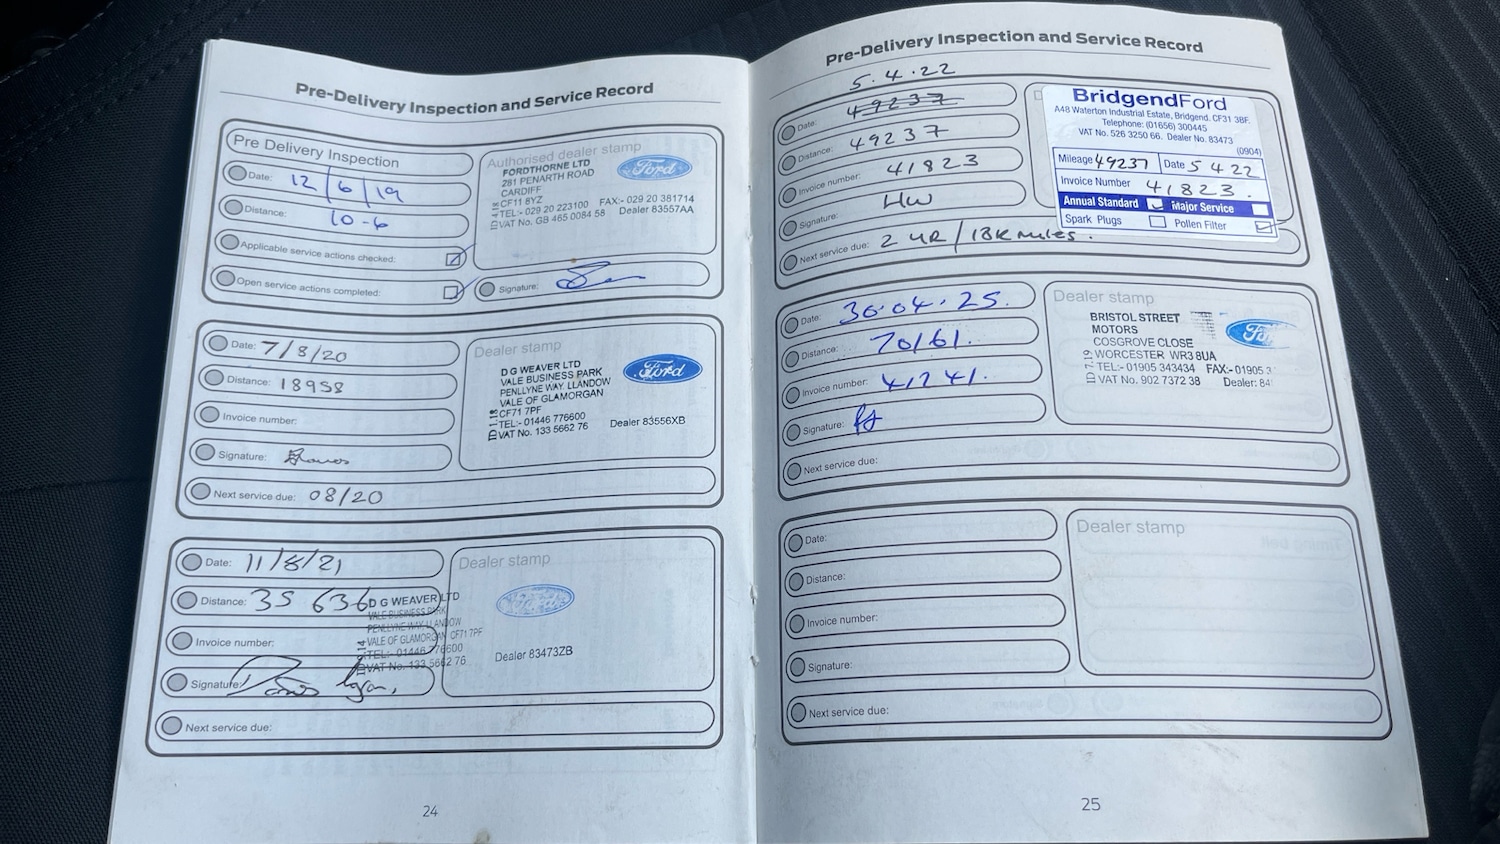 Pre-Delivery Inspection and Service Record
Pre Delivery Inspection
Date: 12/6/19
Distance: 10-6
Applicable service actions checked:
Open service actions completed:
Authorised dealer stamp
FORDTHORNE LTD
281 PENARTH ROAD
CARDIFF
CF11 8YZ
TEL:- 029 20 223100 FAX:- 029 20 381714
VAT No. GB 465 0084 58 Dealer 83557AA
Ford
Signature:
Date: 7/8/20
Distance: 18958
Invoice number:
Signature:
Next service due: 08/20
Dealer stamp
D G WEAVER LTD
VALE BUSINESS PARK
PENLLYNE WAY, LLANDOW
VALE OF GLAMORGAN
CF71 7PF
TEL:- 01446 776600
VAT No. 133 5662 76 Dealer 83556XB
Ford
Date: 11/8/21
Distance: 35 636
Invoice number:
Signature:
Next service due:
Dealer stamp
D G WEAVER LTD
VALE BUSINESS PARK
PENLLYNE WAY, LLANDOW
VALE OF GLAMORGAN CF71 7PF
TEL:- 01446 776600
VAT No. 133 5662 76
Dealer 83473ZB
Ford
24
Pre-Delivery Inspection and Service Record
5.4.22
Date: 49237
Distance: 49237
Invoice number: 41823
Signature: HW
Next service due: 2 YR / 18K miles.
BridgendFord
A48 Waterton Industrial Estate, Bridgend. CF31 3BF.
Telephone: (01656) 300445
VAT No. 526 3250 66. Dealer No. 83473
(0904)
Mileage 49237 Date 5 4 22
Invoice Number 41823.
Annual Standard Major Service
Spark Plugs Pollen Filter
Date: 30.04.25.
Distance: 70161.
Invoice number: 41241.
Signature:
Next service due:
Dealer stamp
BRISTOL STREET
MOTORS
COSGROVE CLOSE
WORCESTER WR3 8UA
TEL:- 01905 343434 FAX:- 01905 3
VAT No. 902 7372 38 Dealer: 84
Date:
Distance:
Invoice number:
Signature:
Next service due:
Dealer stamp
25